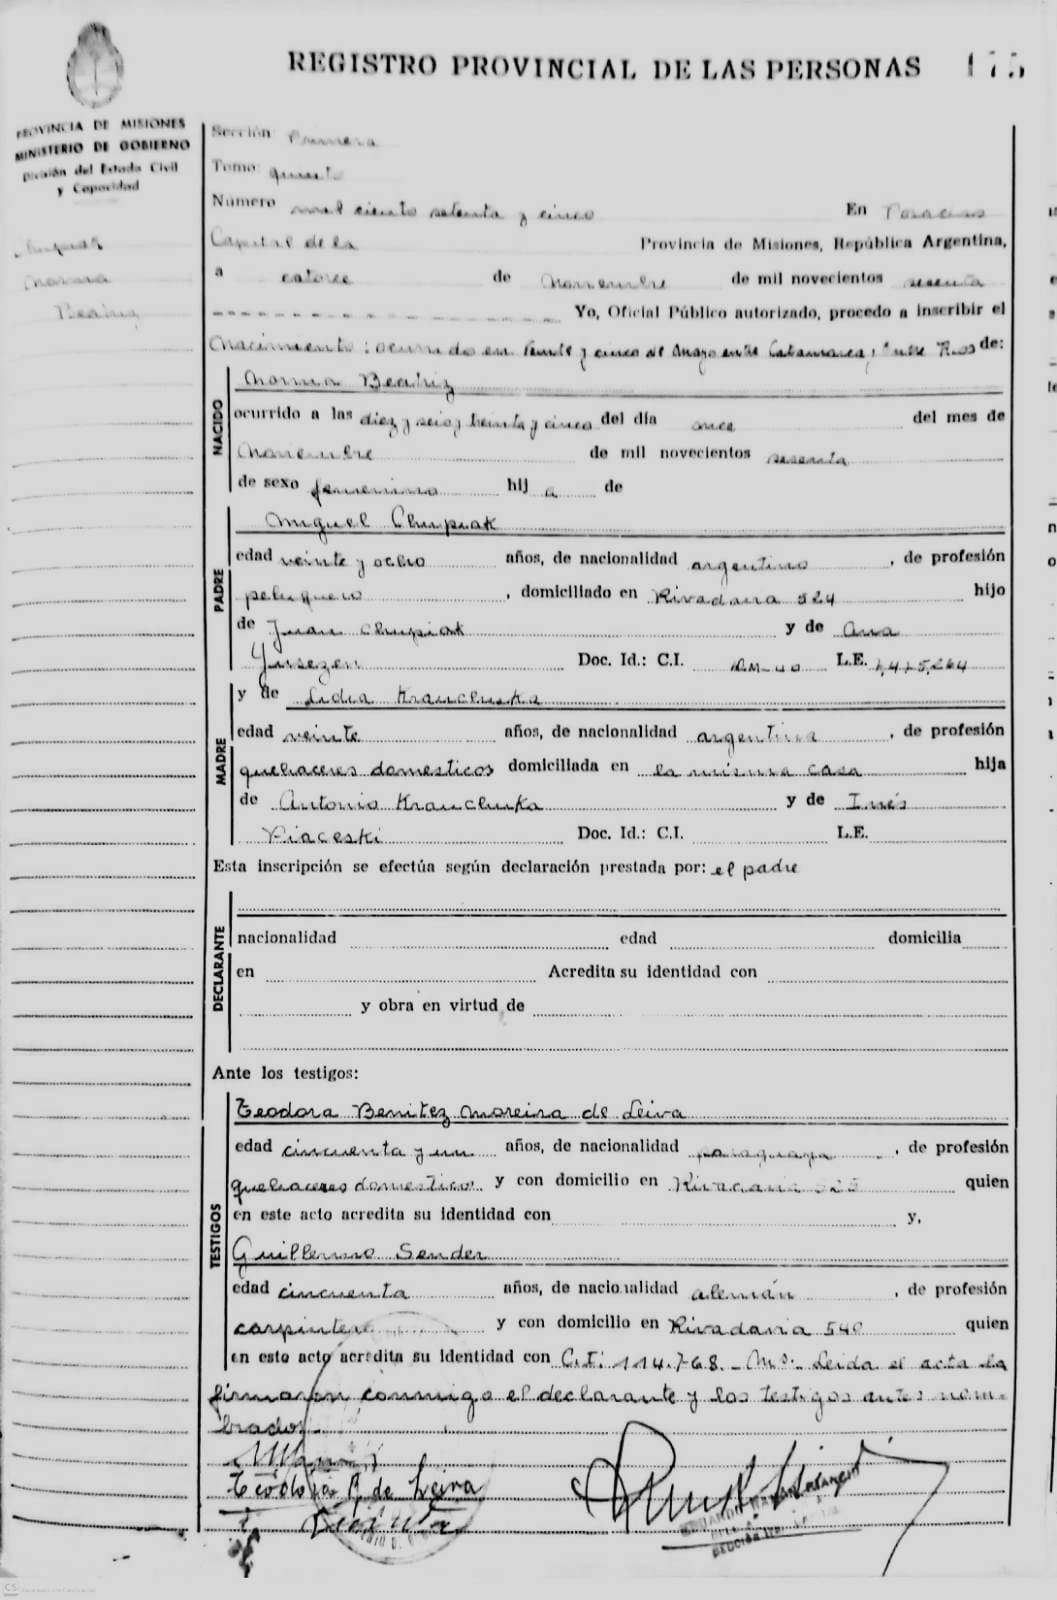 REGISTRO PROVINCIAL DE LAS PERSONAS 175
PROVINCIA DE MISIONES
MINISTERIO DE GOBIERNO
División del Estado Civil
y Capacidad
Chupiak
Norma
Beatriz
Sección Primera
Tomo: quinto
Número mil ciento setenta y cinco En Posadas
Capital de la Provincia de Misiones, República Argentina,
a catorce de Noviembre de mil novecientos sesenta
Yo, Oficial Público autorizado, procedo a inscribir el
Nacimiento: ocurrido en Veinte y cinco de Mayo entre Catamarca y Entre Rios de:
NACIDO
Norma Beatriz
ocurrido a las diez y seis y treinta y cinco del día once del mes de
Noviembre de mil novecientos sesenta
de sexo femenino hij a de
PADRE
Miguel Chupiak
edad veinte y ocho años, de nacionalidad argentino, de profesión
peluquero, domiciliado en Rivadavia 524 hijo
de Juan Chupiak y de Ana
Doc. Id.: C.I. L.E.
MADRE
y de Lidia Krauchuka
edad veinte años, de nacionalidad argentina, de profesión
quehaceres domesticos domiciliada en la misma casa hija
de Antonio Krauchuka y de Inés
Piaceski Doc. Id.: C.I. L.E.
Esta inscripción se efectúa según declaración prestada por: el padre
DECLARANTE
nacionalidad edad domicilia
en Acredita su identidad con
y obra en virtud de
Ante los testigos:
TESTIGOS
Teodora Benitez Moreira de Leiva
edad cincuenta y un años, de nacionalidad paraguaya, de profesión
quehaceres domesticos y con domicilio en Rivadavia quien
en este acto acredita su identidad con y,
Guillermo Sender
edad cincuenta años, de nacionalidad alemán, de profesión
carpintero y con domicilio en Rivadavia 540 quien
en este acto acredita su identidad con C.I: 114.768.- Ms.- Leida el acta la
firmaron conmigo el declarante y los testigos antes nom-
brados.
Teodora B. de Leiva
CS